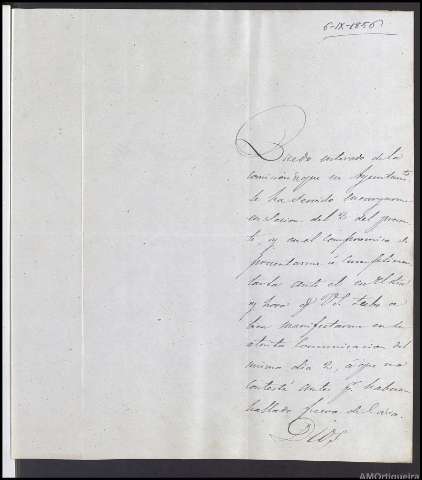 6-IX-1856
Quedo enterado de la
comision que ese Ayuntami.to
se ha servido encargarme
en sesion del 2 del presen-
te, y en el compromiso de
presentarme á cumplimen-
tarla ante el en el dia
y hora q.e V. S. tubo a
bien manifestarme en la
atenta comunicacion del
mismo dia 2, á que no
contesté antes p.r haberme
hallado fuera de casa.
Dios
AMOrtigueira